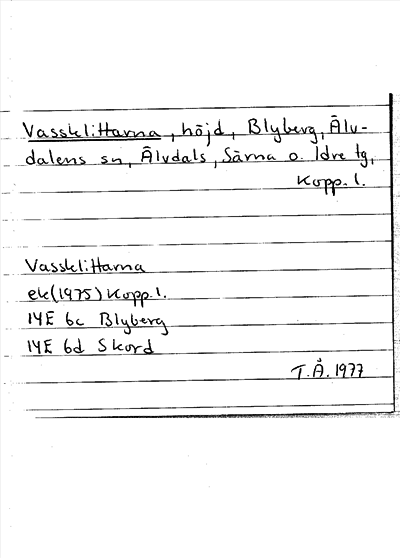 Vassklittarna, höjd, Blyberg, Älv-
dalens sn, Älvdals, Särna o. Idre tg,
Kopp. l.
Vassklittarna
ek (1975) Kopp. l.
14E 6c Blyberg
14E 6d Skord
T.Å. 1977